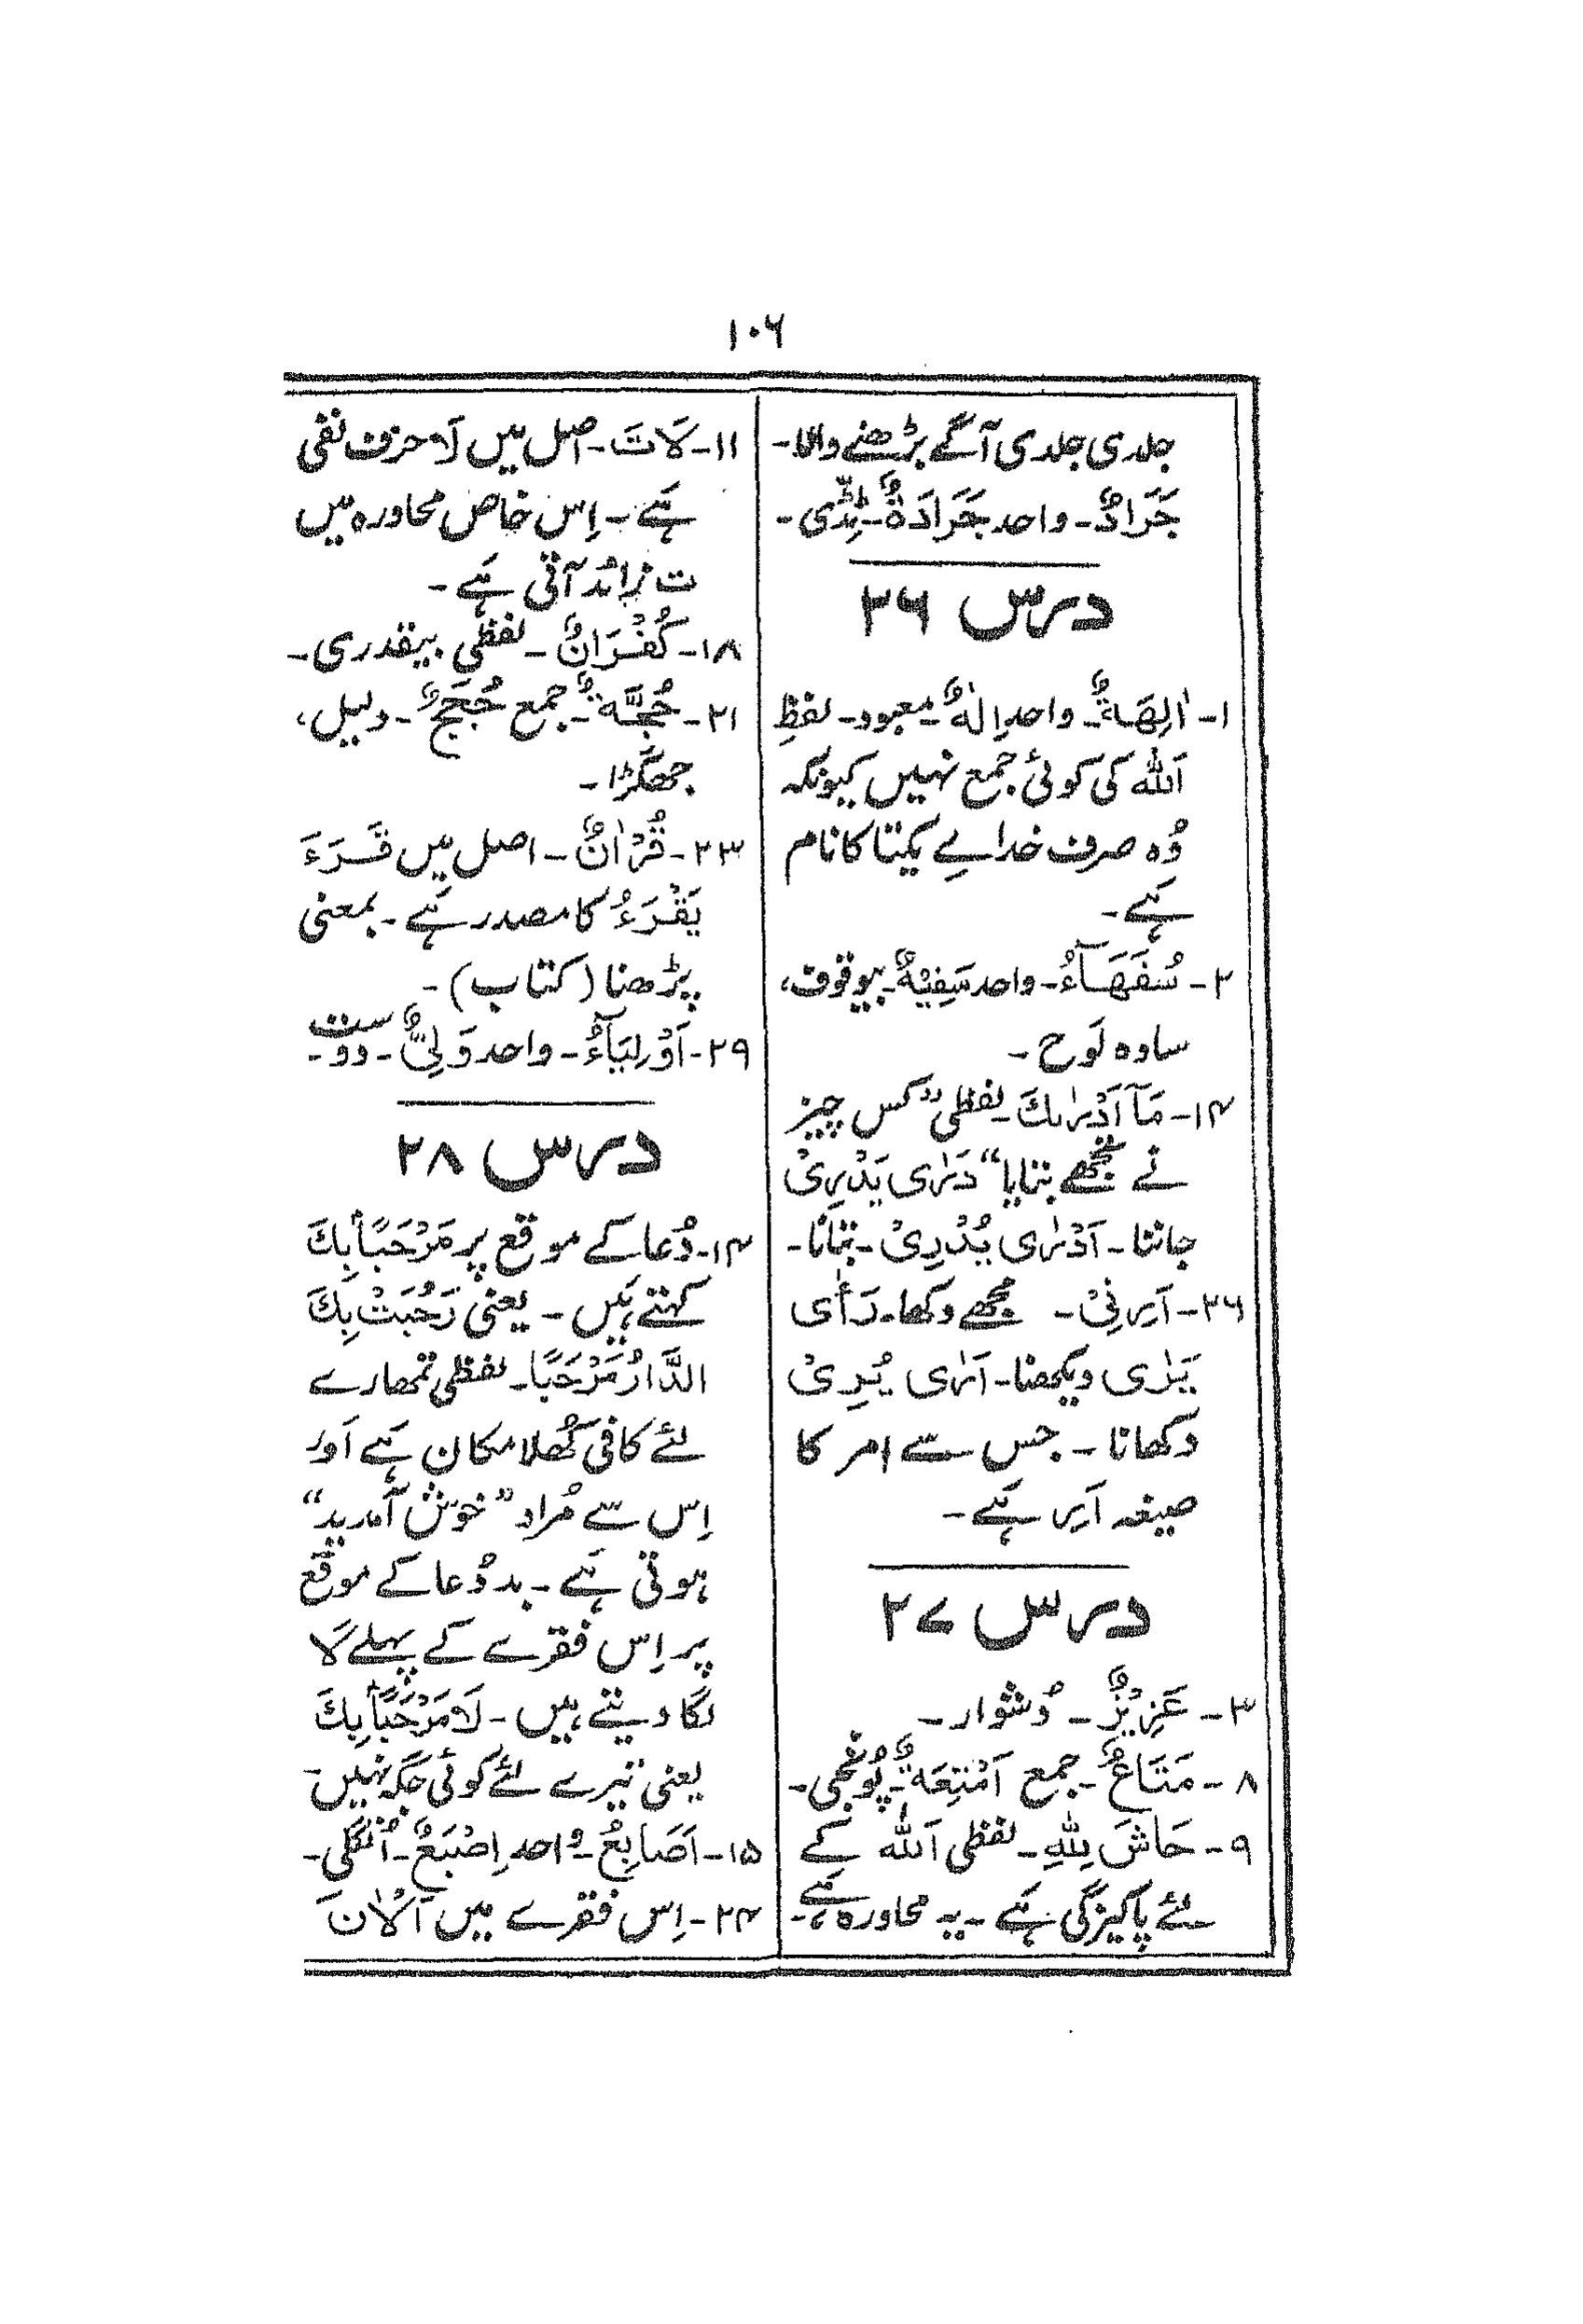 ۱۰۶
جلدی جلدی آگے بڑھنے والا۔
جَرَادٌ۔ واحد جَرَادَةٌ۔ ٹِڈّی۔
درس ۲۶
۱۔ اٰلِهَةٌ۔ واحد اِلٰهٌ۔ معبود۔ لفظِ
اَللّٰہ کی کوئی جمع نہیں کیونکہ
وُہ صرف خداے یکتا کا نام
ہَے۔
۲۔ سُفَهَآءُ۔ واحد سَفِيْهٌ۔ بیوقوف،
سادہ لَوح۔
۱۴۔ مَآ اَدْرٰىكَ۔ لفظی ”کس چیز
نے تجھے بتایا“ دَرٰى يَدْرِىْ
جاننا۔ اَدْرٰى يُدْرِىْ۔ بتانا۔
۲۶۔ اَرِنِىْ۔ مجھے دکھا۔ رَأٰى
يَرٰى دیکھنا۔ اَرٰى يُرِىْ
دکھانا۔ جس سے امر کا
صیغہ اَرِ ہَے۔
درس ۲۷
۳۔ عَزِيْزٌ۔ دُشوار۔
۸۔ مَتَاعٌ۔ جمع اَمْتِعَةٌ۔ پُونجی۔
۹۔ حَاشَ لِلّٰهِ۔ لفظی اَللّٰہ کے
لئے پاکیزگی ہَے۔ یہ محاورہ ہَے۔
۱۱۔ لَاتَ۔ اصل میں لَا حرف نفی
ہَے۔ اِس خاص محاورہ میں
ت زائد آتی ہَے۔
۱۸۔ كُفْرَانٌ۔ لفظی بیقدری۔
۲۱۔ حُجَّةٌ۔ جمع حُجَجٌ۔ دلیل،
جھگڑا۔
۲۳۔ قُرْاٰنٌ۔ اصل میں قَرَءَ
يَقْرَءُ کا مصدر ہَے۔ بمعنی
پڑھنا (کتاب)۔
۲۹۔ اَوْلِيَآءُ۔ واحد وَلِىٌّ۔ دوست۔
درس ۲۸
۱۴۔ دُعا کے موقع پر مَرْحَبًا بِكَ
کہتے ہَیں۔ یعنی رَحُبَتْ بِكَ
الدَّارُ مَرْحَبًا۔ لفظی تمھارے
لئے کافی کُھلا مکان ہَے اَور
اِس سے مُراد ”خوش آمدید“
ہوتی ہَے۔ بد دُعا کے موقع
پر اِس فقرے کے پہلے لَا
لگا دیتے ہیں۔ لَا مَرْحَبًا بِكَ
یعنی تیرے لئے کوئی جگہ نہیں۔
۱۵۔ اَصَابِعُ۔ واحد اِصْبَعٌ۔ اُنگلی۔
۲۴۔ اِس فقرے میں اَلْاٰنَ